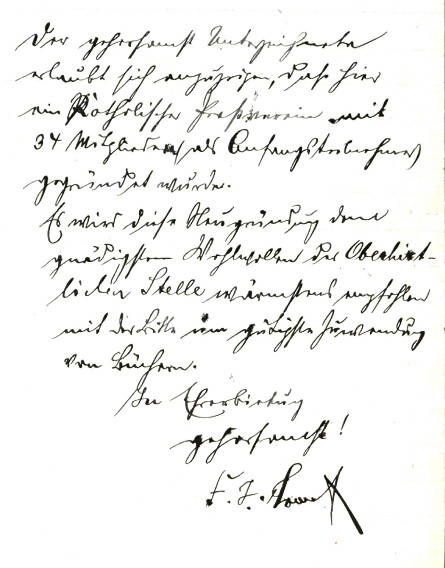 Der gehorsamst Unterzeichnete
erlaubt sich anzuzeigen, daß hier
ein Katholischer Preßverein mit
34 Mitgliedern als Anfangsteilnehmer
gegründet wurde.
Es wird diese Neugründung dem
gnädigsten Wohlwollen der Oberhirt-
lichen Stelle wärmstens empfohlen
mit der Bitte um gütigste Zuwendung
von Büchern.
In Ehrerbietung
gehorsamst!
F. J.